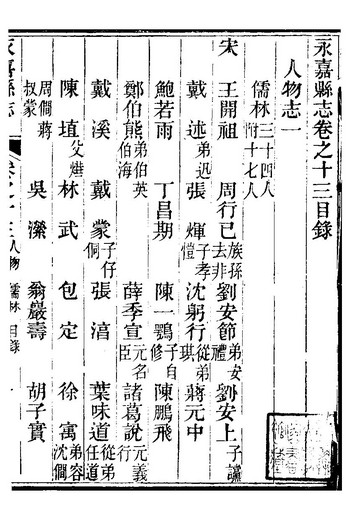 永嘉縣志卷之十三目錄
人物志一
儒林三十四人附十七人
宋 王開祖 周行己族孫去非 劉安節弟安禮 劉安上子諴
戴述弟迅 張煇子孝愷 沈躬行從弟琪 蔣元中
鮑若雨 丁昌期 陳一鶚子自修 陳鵬飛
鄭伯熊弟伯英伯海 薛季宣元名臣 諸葛說元義行
戴溪 戴蒙子仔侗 張淯 葉味道從弟任道
陳埴父燁 林武 包定 徐寓弟容沈僩
周僩蔣叔蒙 吳濴 翁巖壽 胡子實
永嘉縣志 卷之十三 人物 儒林 目錄 一